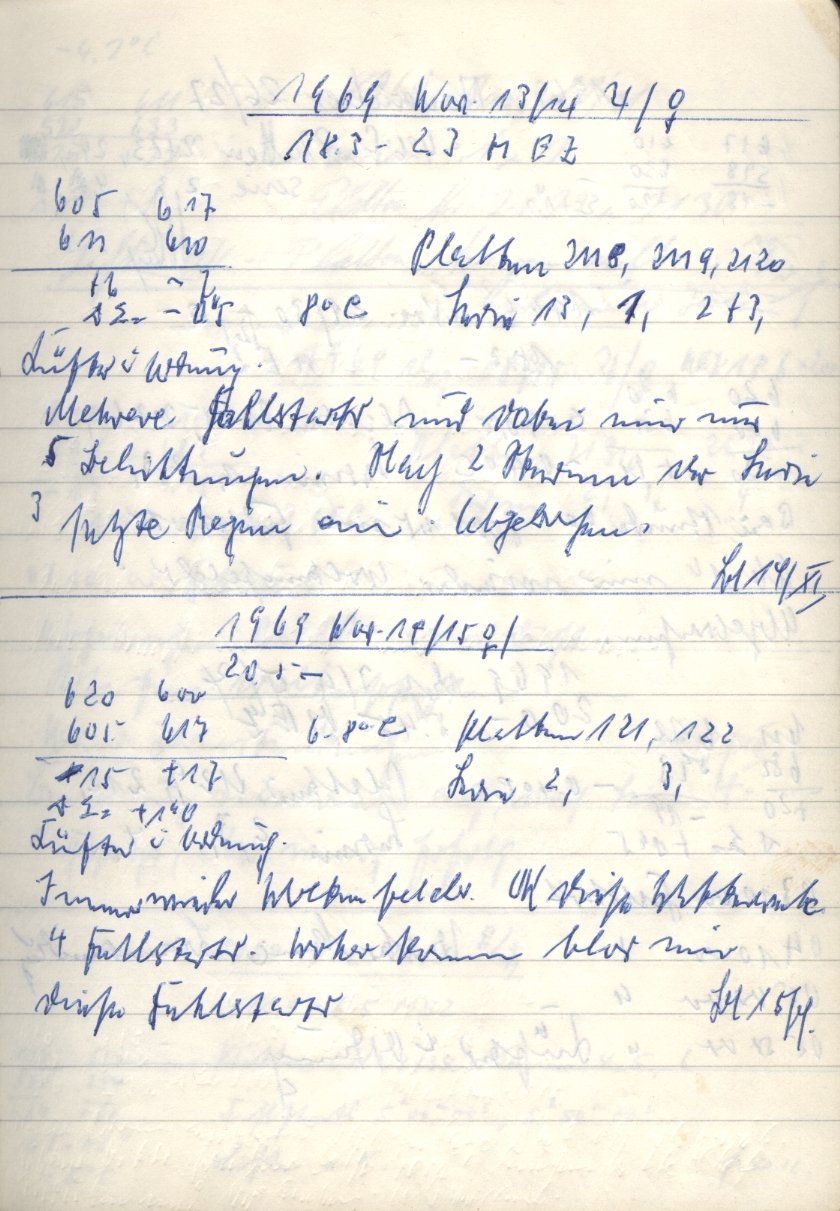 1969 Nov. 13/14 ♃/♀
18.3 - 23 MEZ
605 617
611 610
+6 -7
ΔΣ= - 0.5 8°C
Platten 2118, 2119, 2120
Serie 13, 1, 2+3,
Lüfter i Ordnung.
Mehrere Fehlstarts und dabei nur
5 Belichtungen. Nach 2 Serie
3 setzte Regen ein. Abgebrochen.
14/XI
1969 Nov. 14/15 ♀/
20.5 -
620 600
605 617 6.8°C Platten 121, 122
-15 +17
Serie 2, 3,
ΔΣ= +1.0
Lüfter i Ordnung.
Immer wieder Wolkenfelder. OK diese
4 Fehlstarts. Woher kamen blos nur
diese Fehlstarts
15/XI.